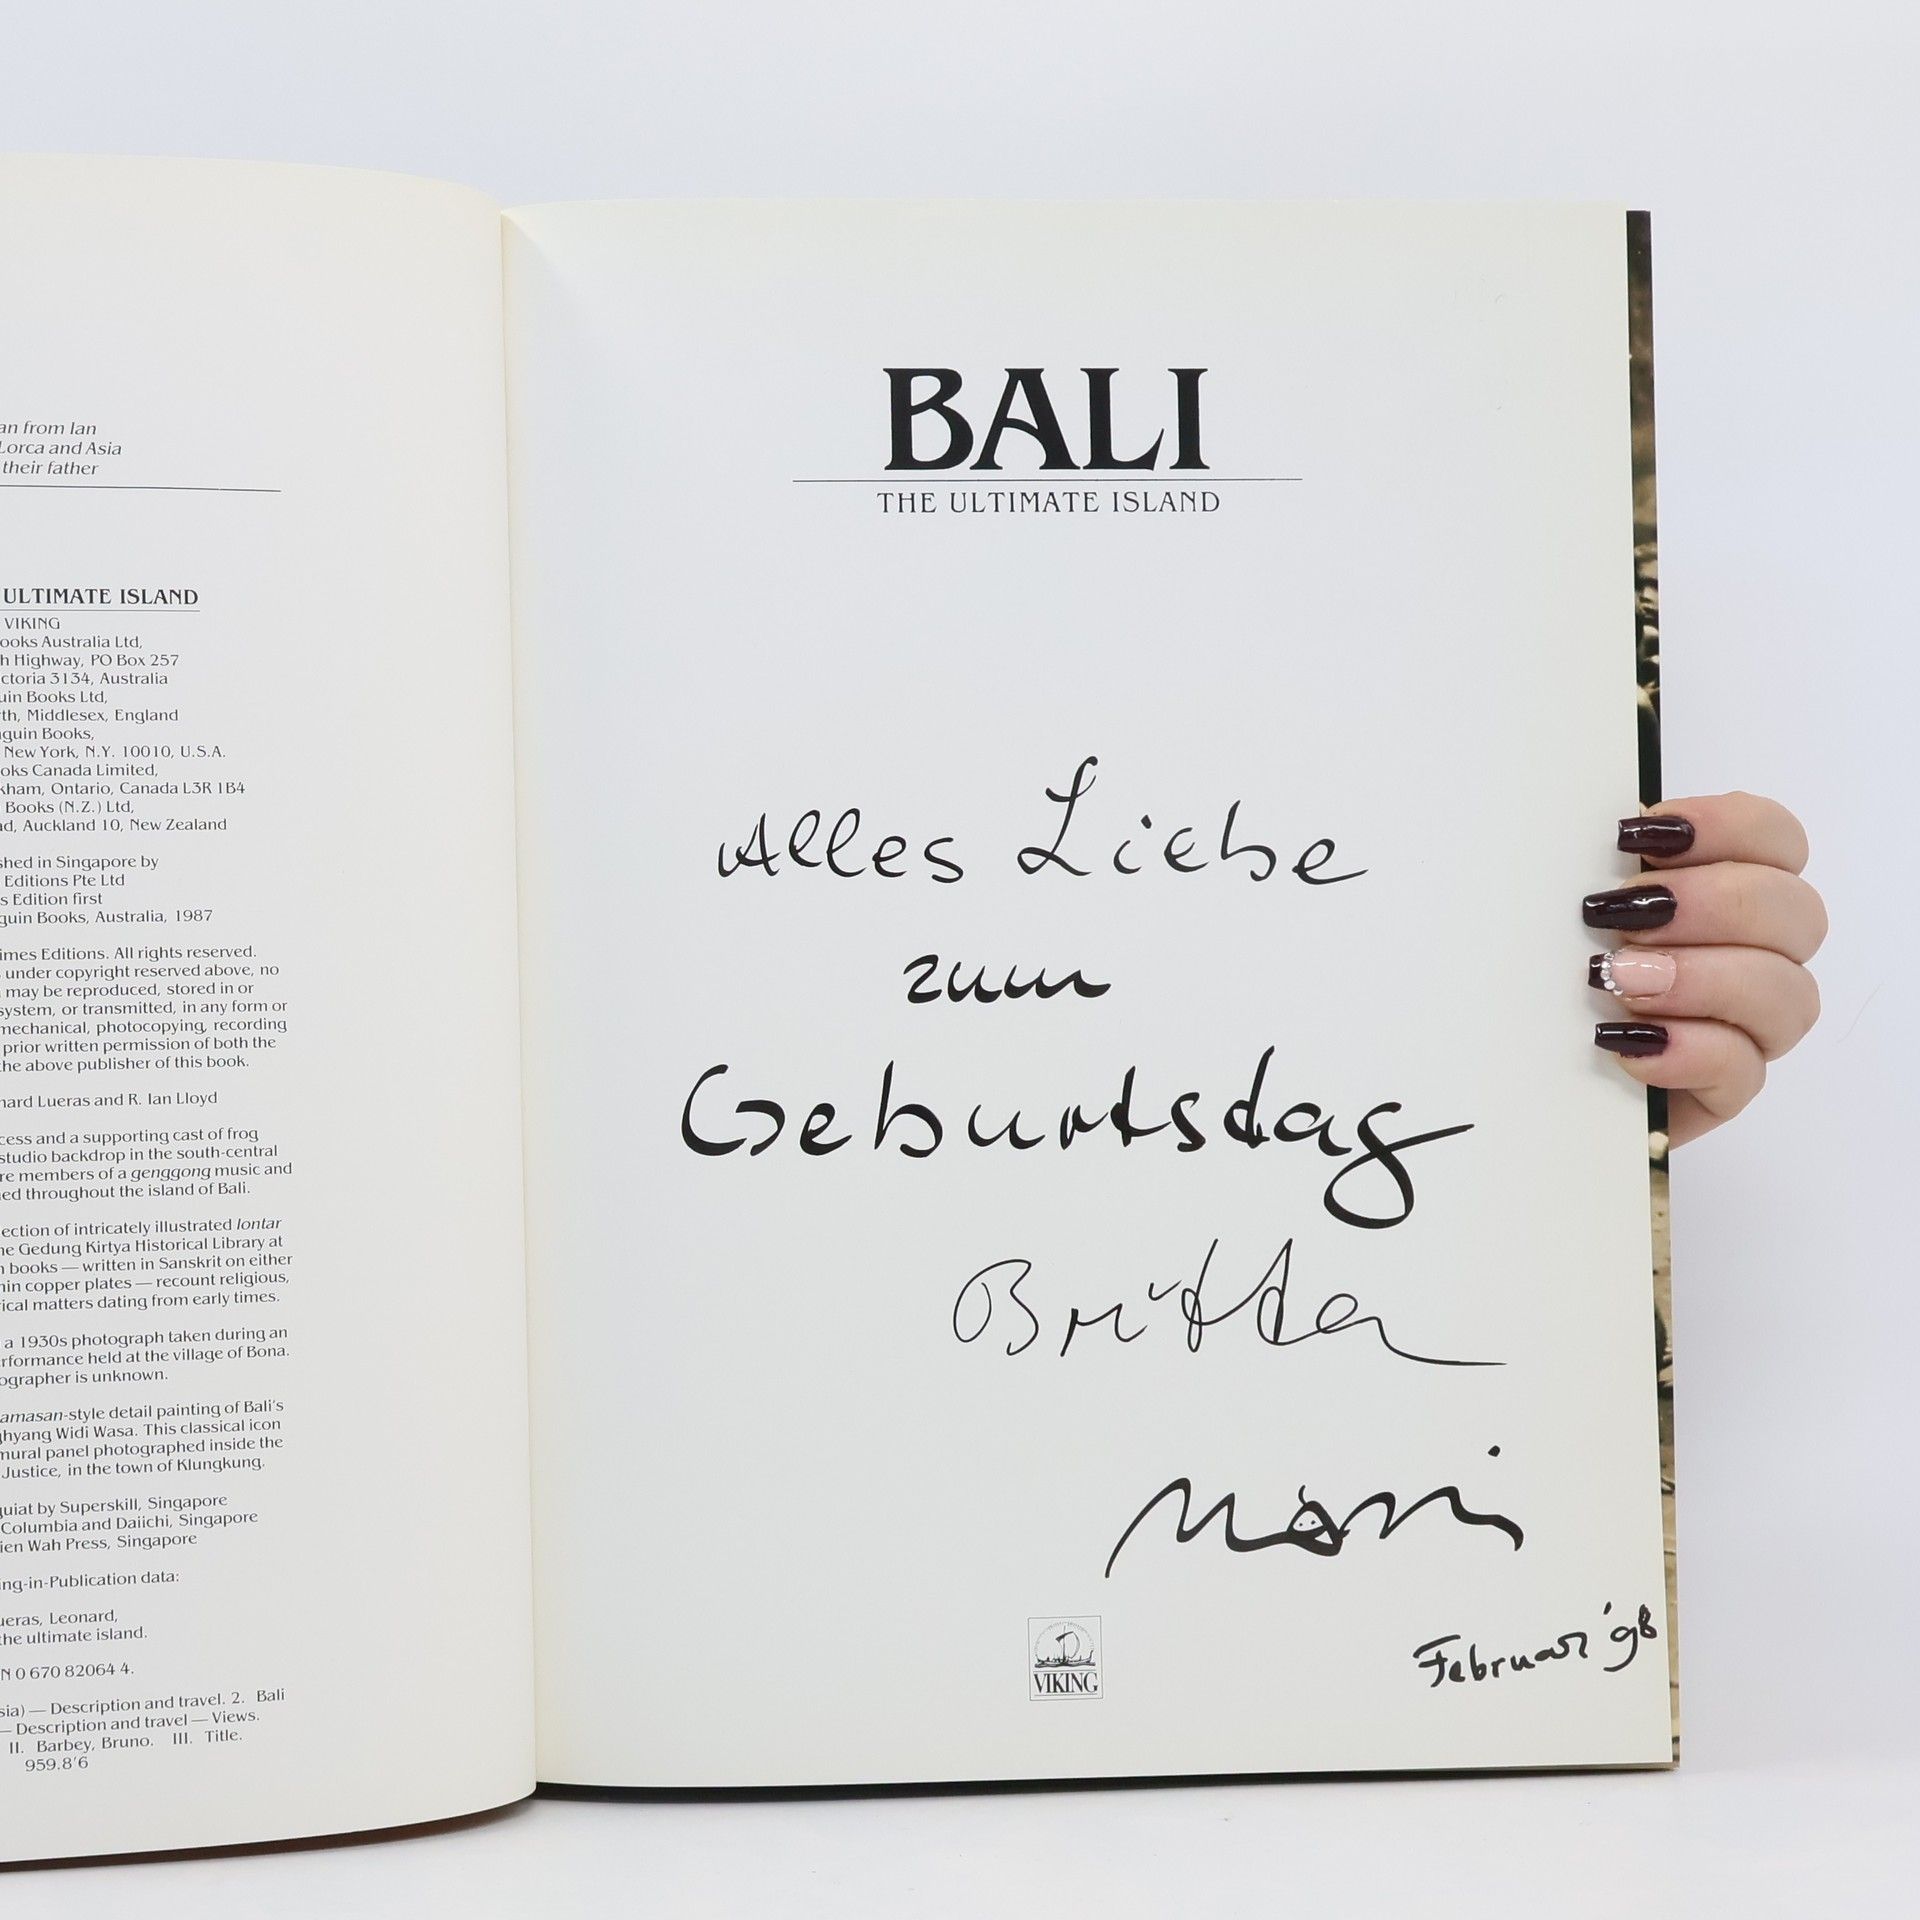 an from Ian
Lorca and Asia
their father
ULTIMATE ISLAND
VIKING
ooks Australia Ltd,
h Highway, PO Box 257
ctoria 3134, Australia
uin Books Ltd,
th, Middlesex, England
guin Books,
New York, N.Y. 10010, U.S.A.
oks Canada Limited,
kham, Ontario, Canada L3R 1B4
Books (N.Z.) Ltd,
ad, Auckland 10, New Zealand
shed in Singapore by
Editions Pte Ltd
s Edition first
guin Books, Australia, 1987
imes Editions. All rights reserved.
under copyright reserved above, no
may be reproduced, stored in or
system, or transmitted, in any form or
mechanical, photocopying, recording
prior written permission of both the
the above publisher of this book.
nard Lueras and R. Ian Lloyd
cess and a supporting cast of frog
studio backdrop in the south-central
re members of a genggong music and
ed throughout the island of Bali.
ection of intricately illustrated lontar
he Gedung Kirtya Historical Library at
n books — written in Sanskrit on either
hin copper plates — recount religious,
rical matters dating from early times.
a 1930s photograph taken during an
rformance held at the village of Bona.
ographer is unknown.
amasan-style detail painting of Bali's
ghyang Widi Wasa. This classical icon
mural panel photographed inside the
Justice, in the town of Klungkung.
quiat by Superskill, Singapore
Columbia and Daiichi, Singapore
ien Wah Press, Singapore
ing-in-Publication data:
ueras, Leonard,
the ultimate island.
N 0 670 82064 4.
sia) — Description and travel. 2. Bali
— Description and travel — Views.
II. Barbey, Bruno. III. Title.
959.8'6
BALI
THE ULTIMATE ISLAND
Alles Liebe
zum
Geburtsdag
Britta
VIKING
Februar '98